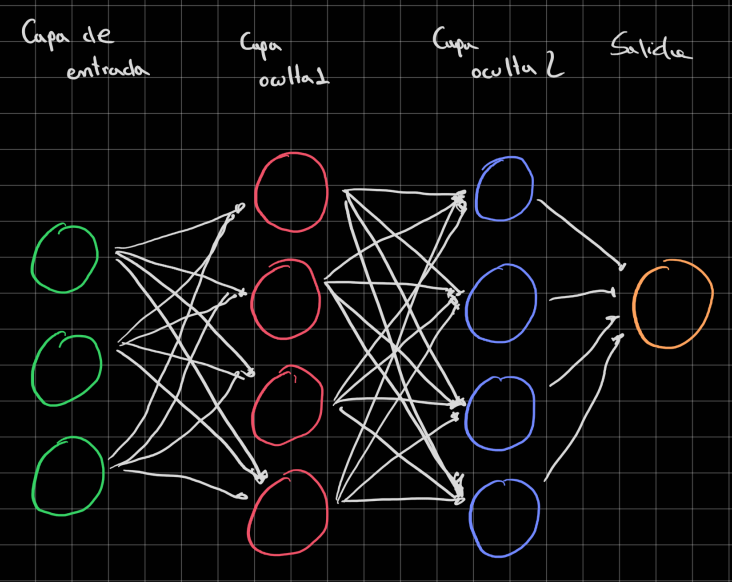 Capa de
entrada
Capa
oculta1
Capa
oculta 2
Salida